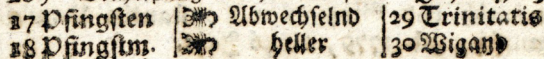 17 Pfingsten Abwechselnd 29 Trinitatis
18 Pfingstm. heller 30 Wigand